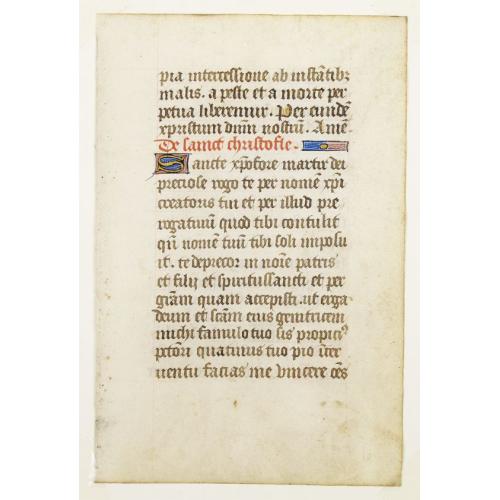 pia intercessione ab instãtib;
malis. a peste et a morte per
petua liberemur. Per eundẽ
xpristum dñm nostrũ. Amẽ.
De sainct christofle.
Sancte xp̃ofore martir dei
preciose rogo te per nomẽ xp̃i
creatoris tui et per illud pre
rogatiuũ quod tibi contulit
qñ nomẽ tuũ tibi soli imposu
it. te deprecor in noĩe patris
et filii et spiritussancti et per
gr̃am quam accepisti. ut erga
deum et sc̃am eius genitricem
michi famulo tuo sis propici⁹
pc̃tori quatinus tuo pio ĩter
uentu facias me vincere oẽs